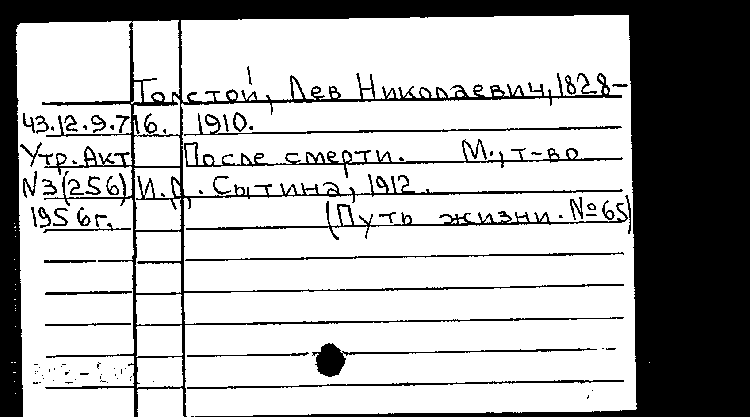 Толстой, Лев Николаевич, 1828-
43.12.9.716. 1910.
Утр. Акт После смерти. М., т-во
N3(256) И.Д. Сытина, 1912.
1956г. (Путь жизни. №65)